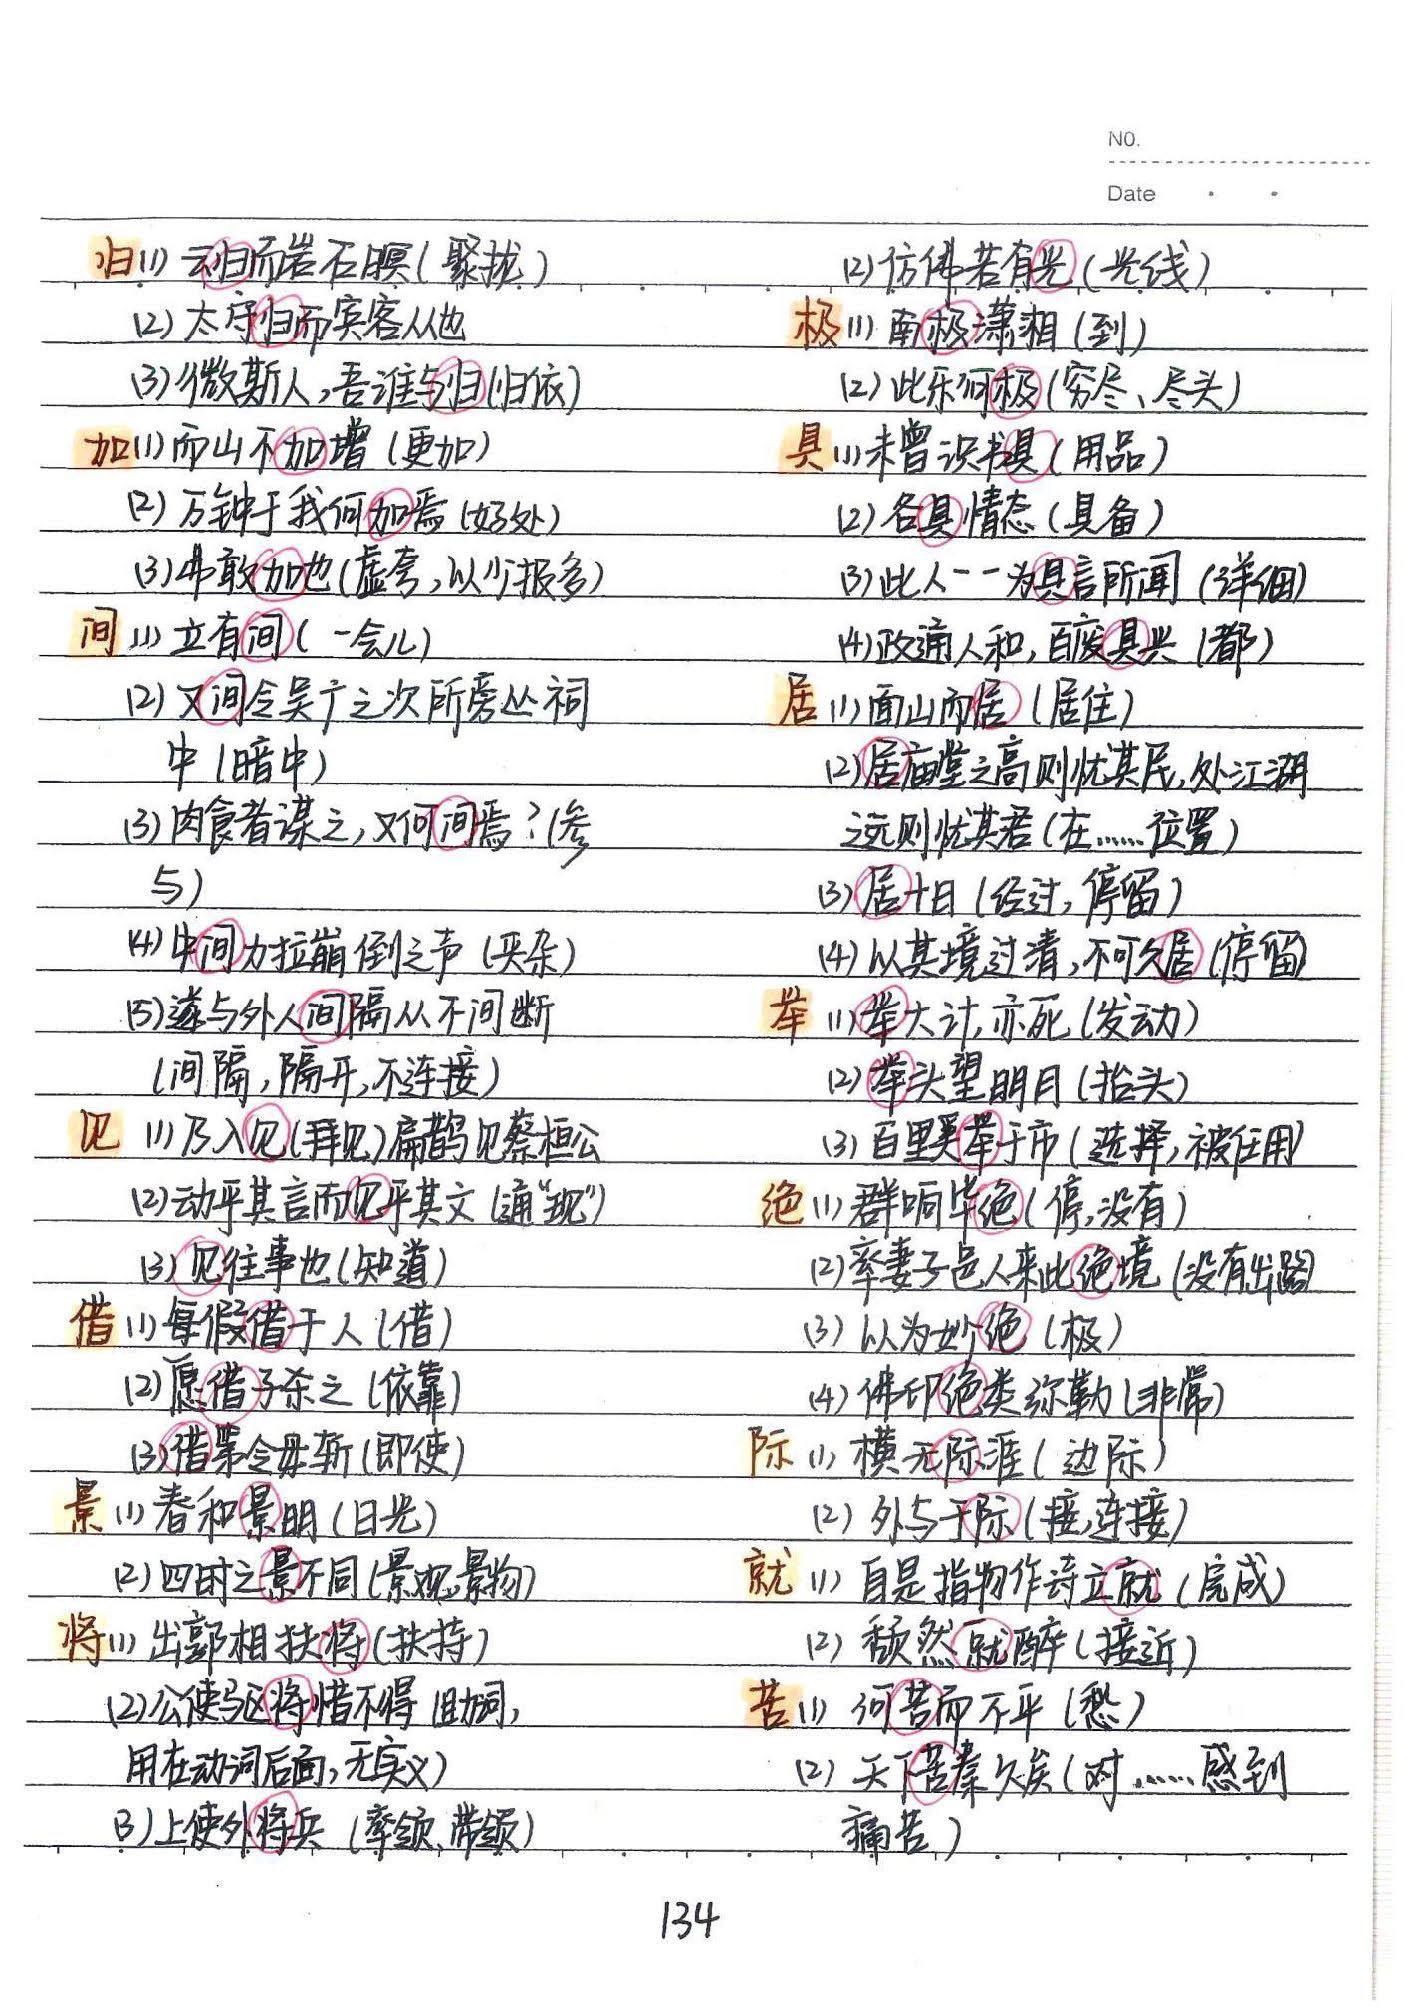 NO.
Date
归(1)云归而岩石暝(聚拢)
(2)太守归而宾客从也
(3)微斯人,吾谁与归(归依)
加(1)而山不加增(更加)
(2)万钟于我何加焉(好处)
(3)弗敢加也(虚夸,以少报多)
间(1)立有间(一会儿)
(2)又间令吴广之次所旁丛祠
中(暗中)
(3)肉食者谋之,又何间焉?(参
与)
(4)中间力拉崩倒之声(夹杂)
(5)遂与外人间隔从不间断
(间隔,隔开,不连接)
见(1)乃入见(拜见)扁鹊见蔡桓公
(2)动乎其言而见乎其文(通“现”)
(3)见往事也(知道)
借(1)每假借于人(借)
(2)愿借子杀之(依靠)
(3)借第令毋斩(即使)
景(1)春和景明(日光)
(2)四时之景不同(景观,景物)
将(1)出郭相扶将(扶持)
(2)公使驱将惜不得(助词,
用在动词后面,无实义)
(3)上使外将兵(率领、带领)
(2)仿佛若有光(光线)
极(1)南极潇湘(到)
(2)此乐何极(穷尽、尽头)
具(1)未曾识书具(用品)
(2)各具情态(具备)
(3)此人一一为具言所闻(详细)
(4)政通人和,百废具兴(都)
居(1)面山而居(居住)
(2)居庙堂之高则忧其民,处江湖
之远则忧其君(在……位置)
(3)居十日(经过,停留)
(4)以其境过清,不可久居(停留)
举(1)举大计,亦死(发动)
(2)举头望明月(抬头)
(3)百里奚举于市(选择,被任用)
绝(1)群响毕绝(停,没有)
(2)率妻子邑人来此绝境(没有出路)
(3)以为妙绝(极)
(4)佛印绝类弥勒(非常)
际(1)横无际涯(边际)
(2)外与天际(接,连接)
就(1)自是指物作诗立就(完成)
(2)颓然就醉(接近)
苦(1)何苦而不平(愁)
(2)天下苦秦久矣(对……感到
痛苦)
134